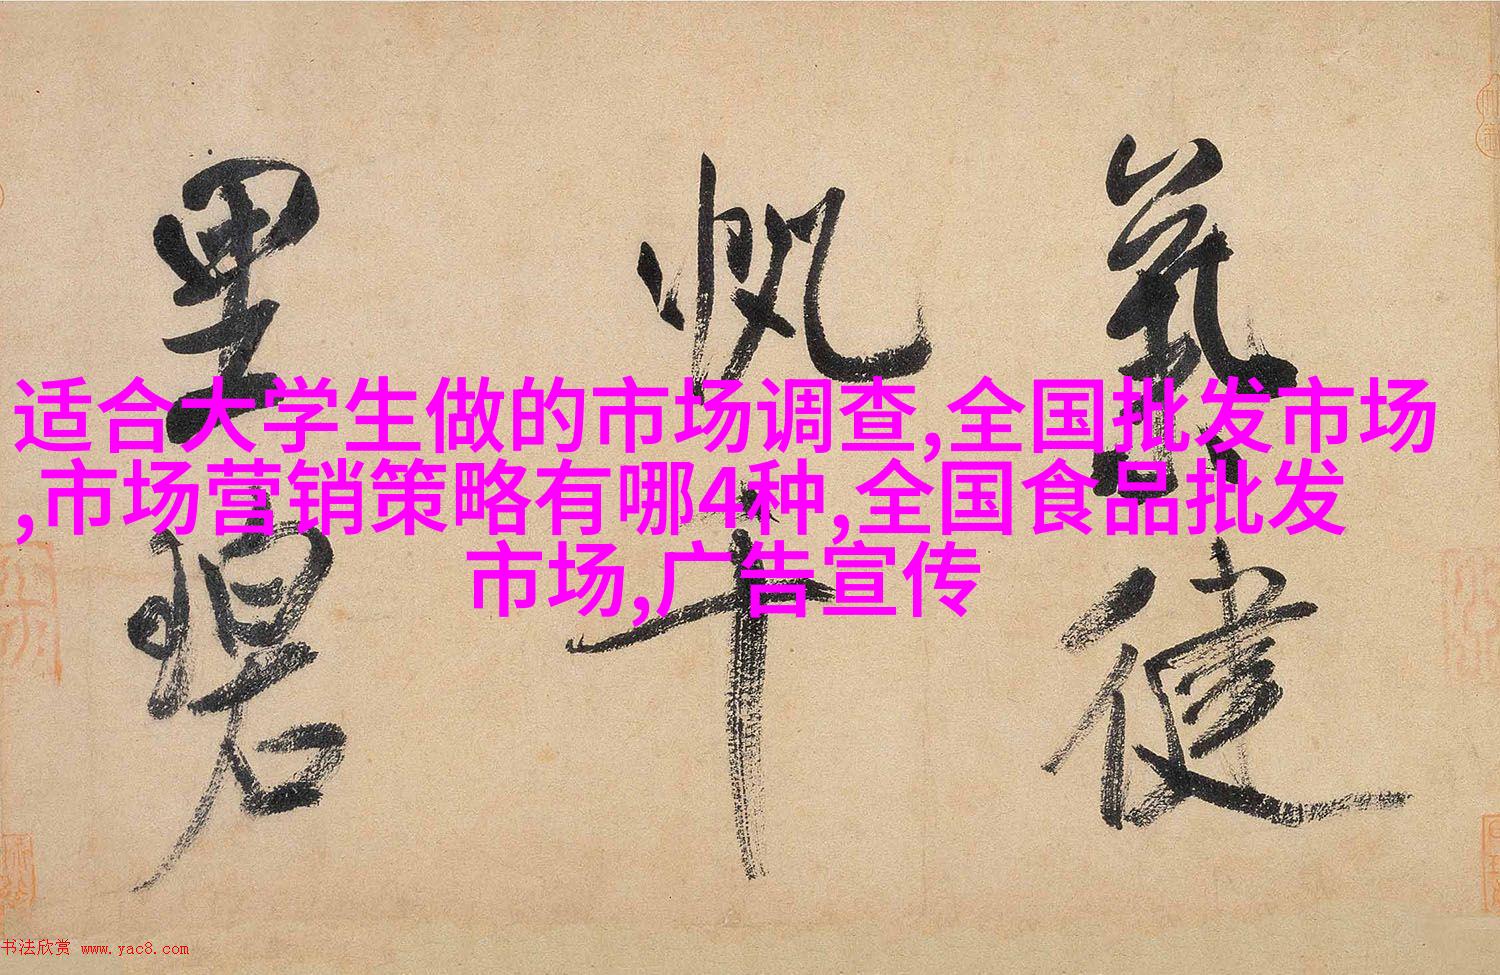 适合大学生做的市场调查,全国批发市场
,市场营销策略有哪4种,全国食品批发
市场,广告宣传
健
帆十
里碧
书法欣赏 www.yac8.com